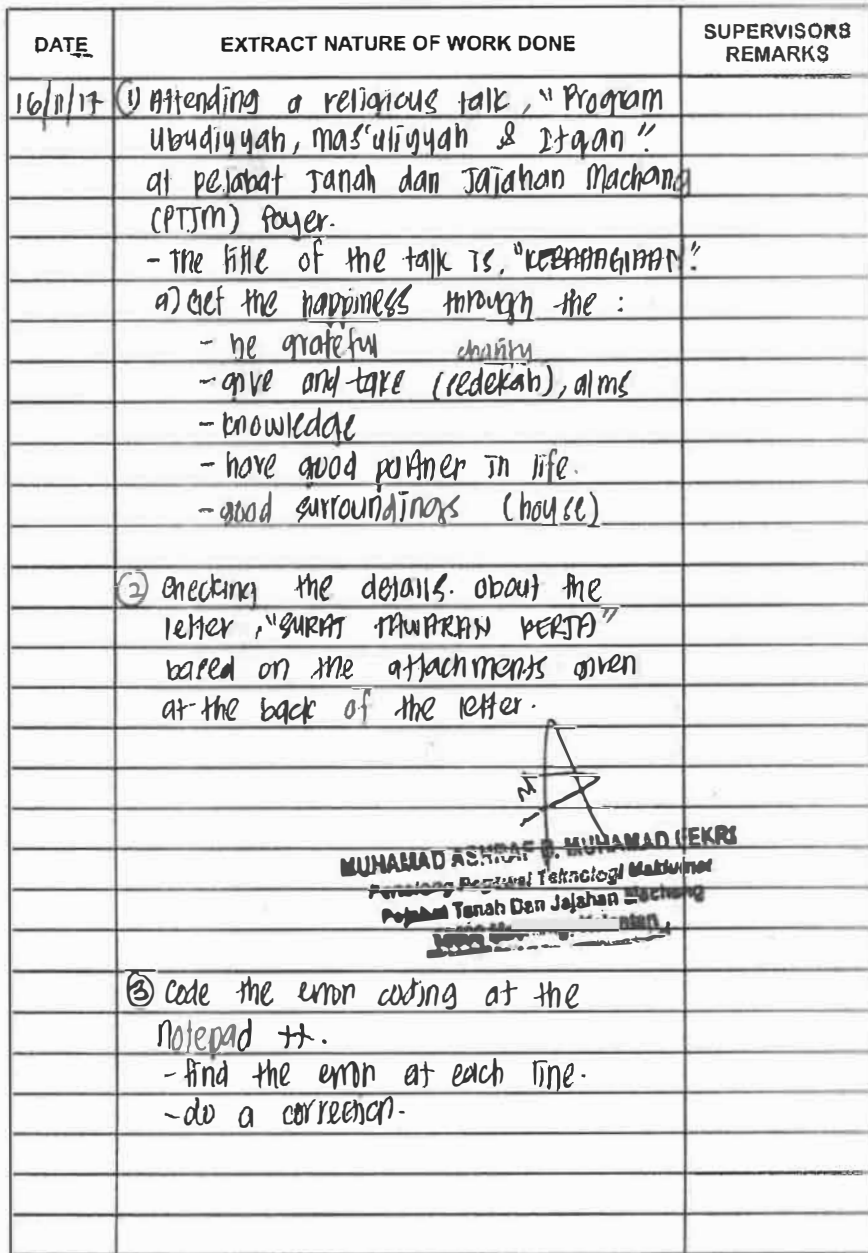 DATE
EXTRACT NATURE OF WORK DONE
SUPERVISORS
REMARKS
16/11/17 (1) Attending a religious talk, "Program
Ubudiyyah, mas'uliyyah & Itqan"
at pejabat Tanah dan Jajahan Machang
(PTJM) foyer.
- The title of the talk is, "KEBAHAGIAAN".
a) Get the happiness through the :
- be grateful
charity
- give and take (sedekah), alms
- knowledge
- have good partner in life.
- good surroundings (house)
(2) Checking the details. about the
letter, "SURAT TAWARAN KERJA"
based on the attachments given
at the back of the letter.
MUHAMAD ASHRAF B. MUHAMAD FEKRI
Penolong Pegawai Teknologi Maklumat
Pejabat Tanah Dan Jajahan Machang
(3) Code the error coding at the
Notepad ++.
- find the error at each line.
- do a correction.